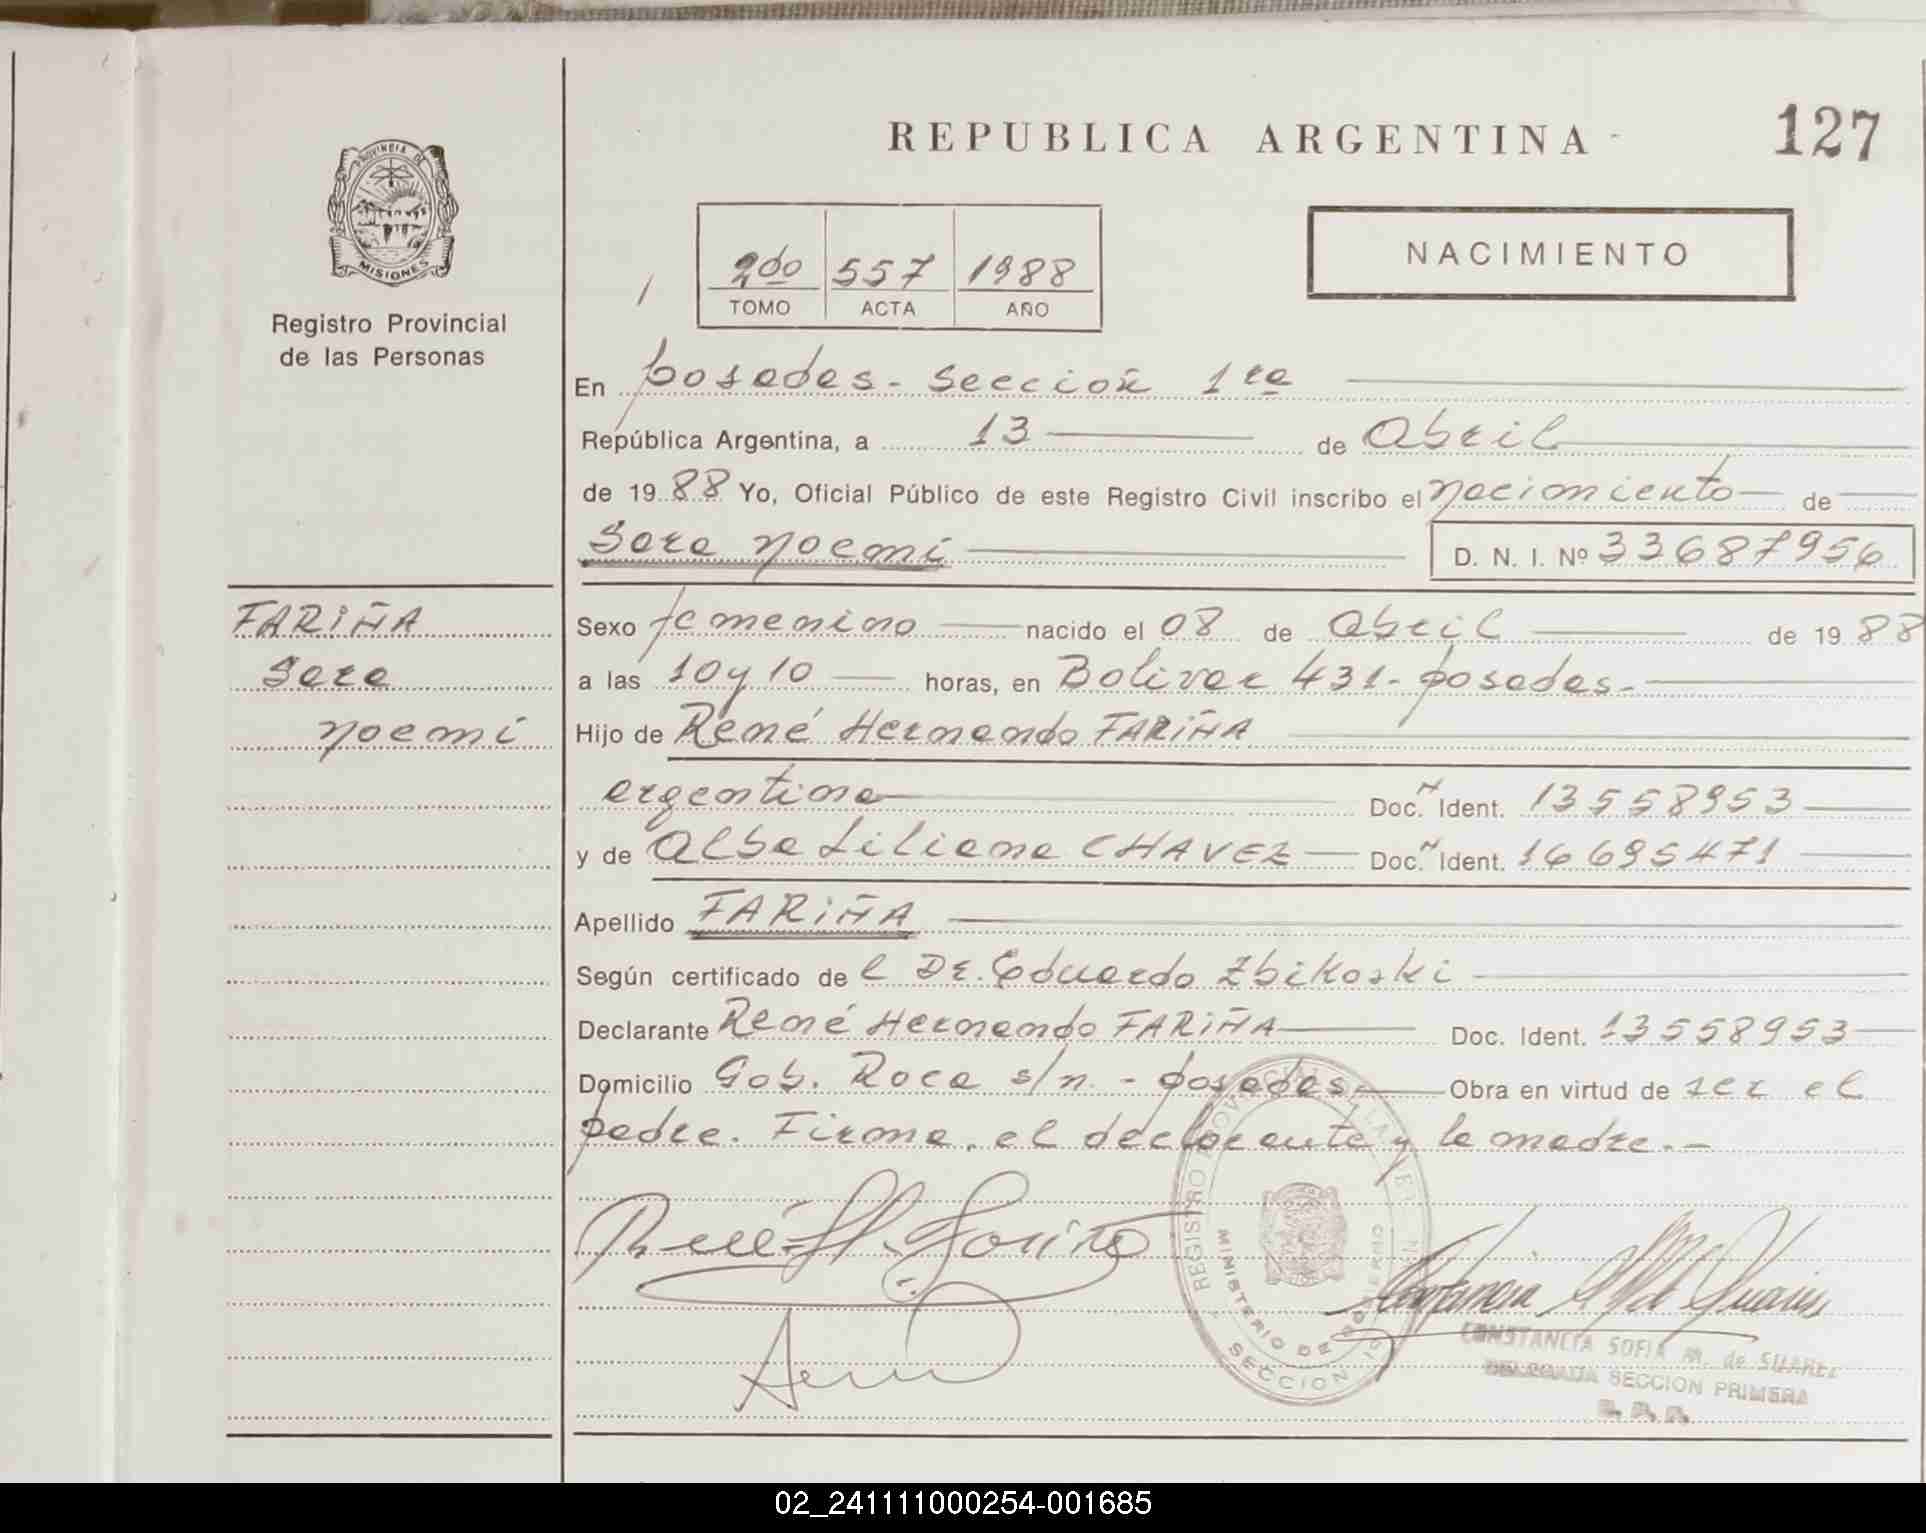 REPUBLICA ARGENTINA
127
PROVINCIA DE
MISIONES
Registro Provincial
de las Personas
2do 557 1988
TOMO ACTA AÑO
NACIMIENTO
En Posadas - Sección 1ra
República Argentina, a 13 de Abril
de 1988 Yo, Oficial Público de este Registro Civil inscribo el nacimiento de
Sara Noemí D. N. I. Nº 33687956
FARIÑA
Sara
Noemí
Sexo femenino nacido el 08 de Abril de 1988
a las 10 y 10 horas, en Bolivar 431 - Posadas.-
Hijo de René Hernando FARIÑA
argentina Doc. N Ident. 13558953
y de Alba Liliana CHAVEZ Doc. N Ident. 16695471
Apellido FARIÑA
Según certificado del Dr. Eduardo Zbikoski
Declarante René Hernando FARIÑA Doc. Ident. 13558953
Domicilio Gob. Roca s/n. - Posadas - Obra en virtud de ser el
padre. Firma, el declarante y la madre.-
René H. Fariña
REGISTRO PROVINCIAL DE LAS
MINISTERIO DE GOBIERNO
SECCION 1
CONSTANCIA SOFIA M. de SUAREZ
DELEGADA SECCION PRIMERA
R. P. P.
02_241111000254-001685